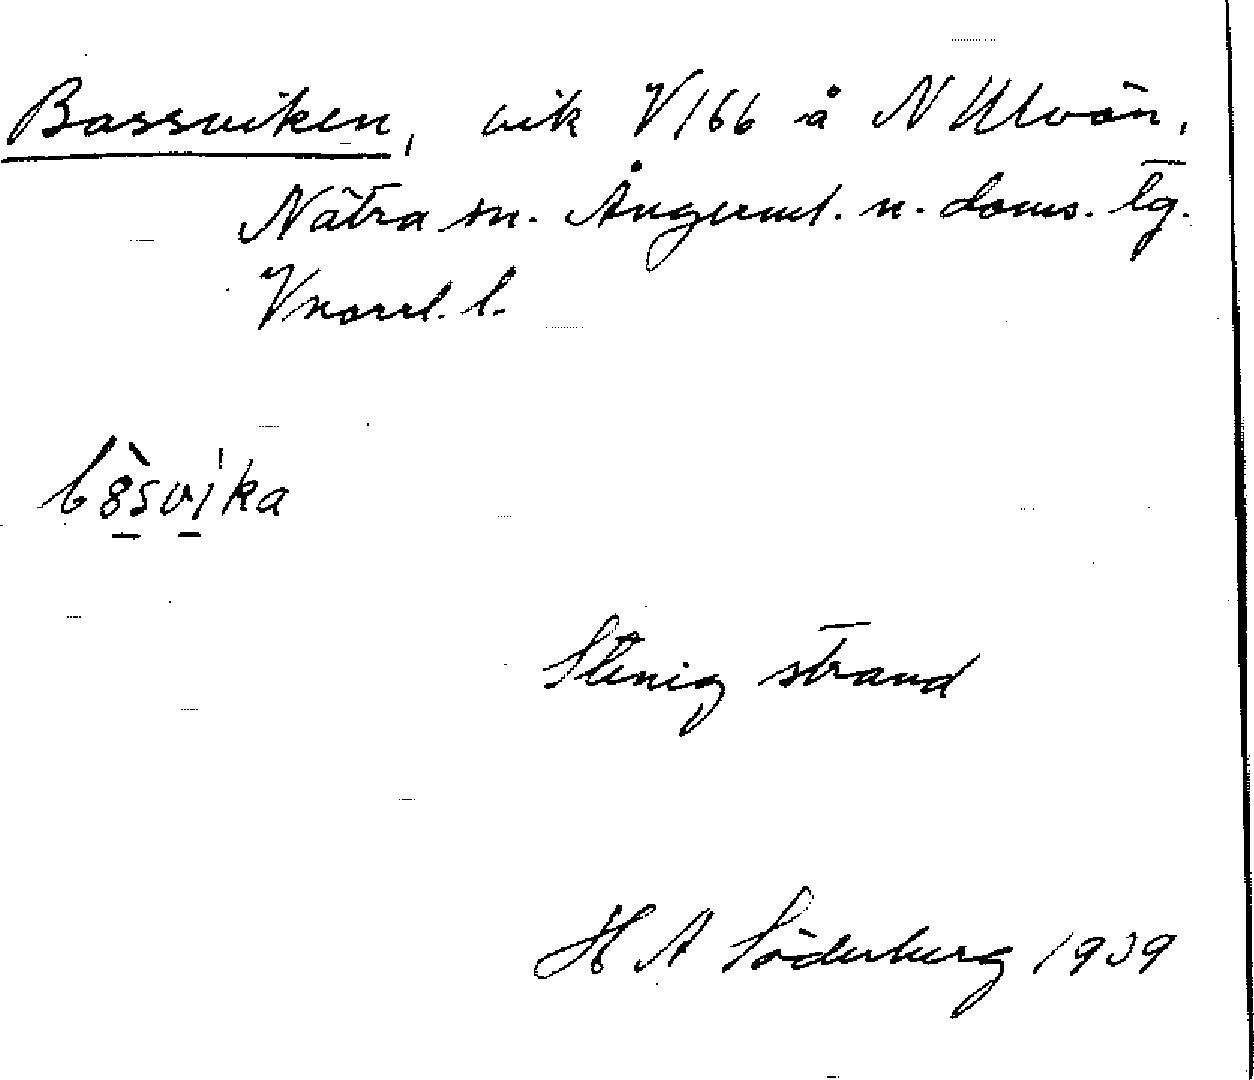 Bassviken, vik V166 å N Ulvön,
Nätra sn. Ångerml. n. doms. tg.
Vnorrl. l.
Stenig strand
H A Söderberg 1939